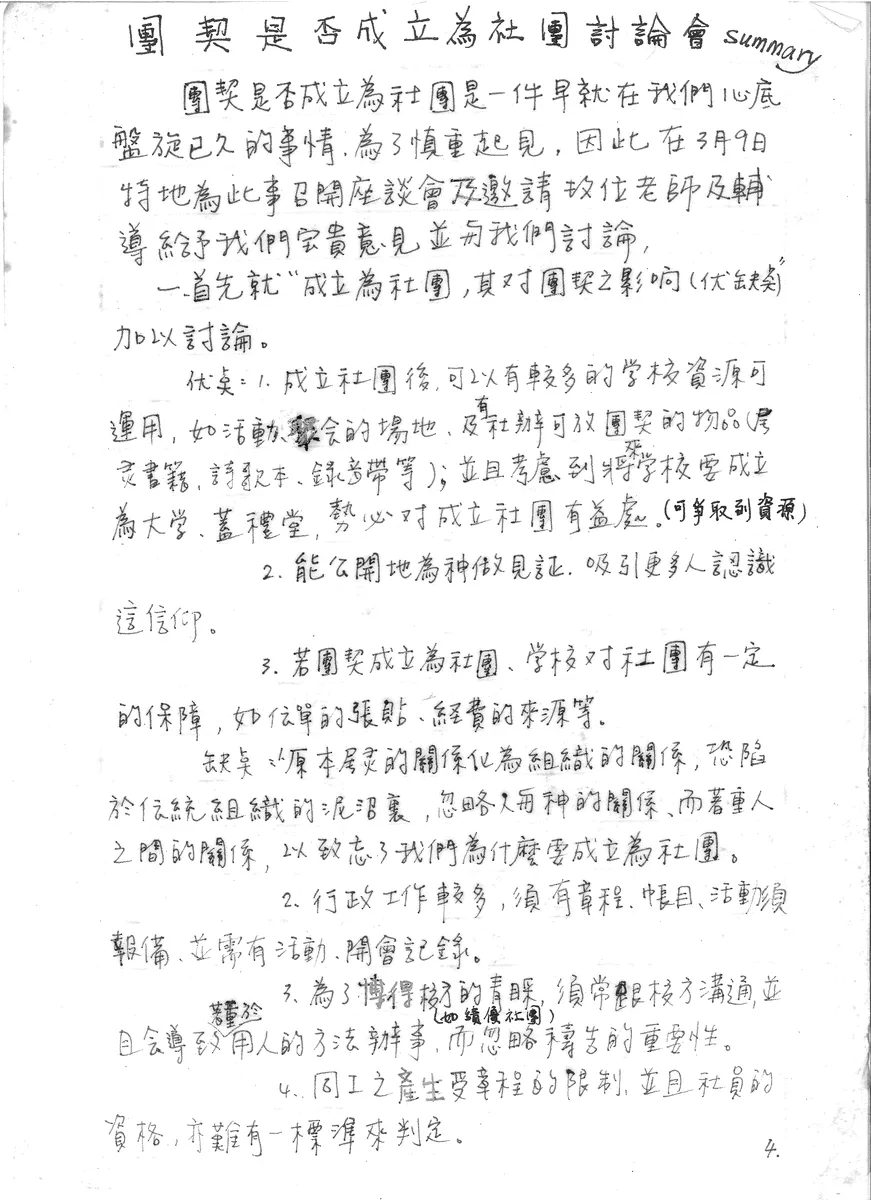 團契是否成立為社團討論會 summary
團契是否成立為社團是一件早就在我們心底
盤旋已久的事情、為了慎重起見，因此在3月9日
特地為此事召開座談會及邀請故位老師及輔
導給予我們宝貴意見並与我們討論，
一、首先就“成立為社團，其对團契之影响(优缺奌)”
加以討論。
优奌：1. 成立社團後，可以有較多的学校資源可
運用，如活動、聚会的場地、及有社辦可放團契的物品(屬
灵書籍、詩歌本、錄音帶等)；並且考慮到將來学校要成立
為大学、蓋禮堂，勢必对成立社團有益處。(可爭取到資源)
2. 能公開地為神做見証、吸引更多人認識
這信仰。
3. 若團契成立為社團、学校对社團有一定
的保障，如伝單的張貼、経費的來源等。
缺奌：1.原本屬灵的關係化為組織的關係，恐陷
於伝統組織的泥沼裏，忽略人与神的關係、而著重人
之間的關係，以致忘了我們為什麼要成立為社團。
2. 行政工作較多，須有章程、帳目、活動須
報備、並需有活動、開會記錄。
3. 為了博得校方的青睞，須常跟校方溝通，並
(如績優社團)
且会導致著重於用人的方法辦事，而忽略禱告的重要性。
4. 同工之產生受章程的限制、並且社員的
資格，亦難有一標準來判定。
4.